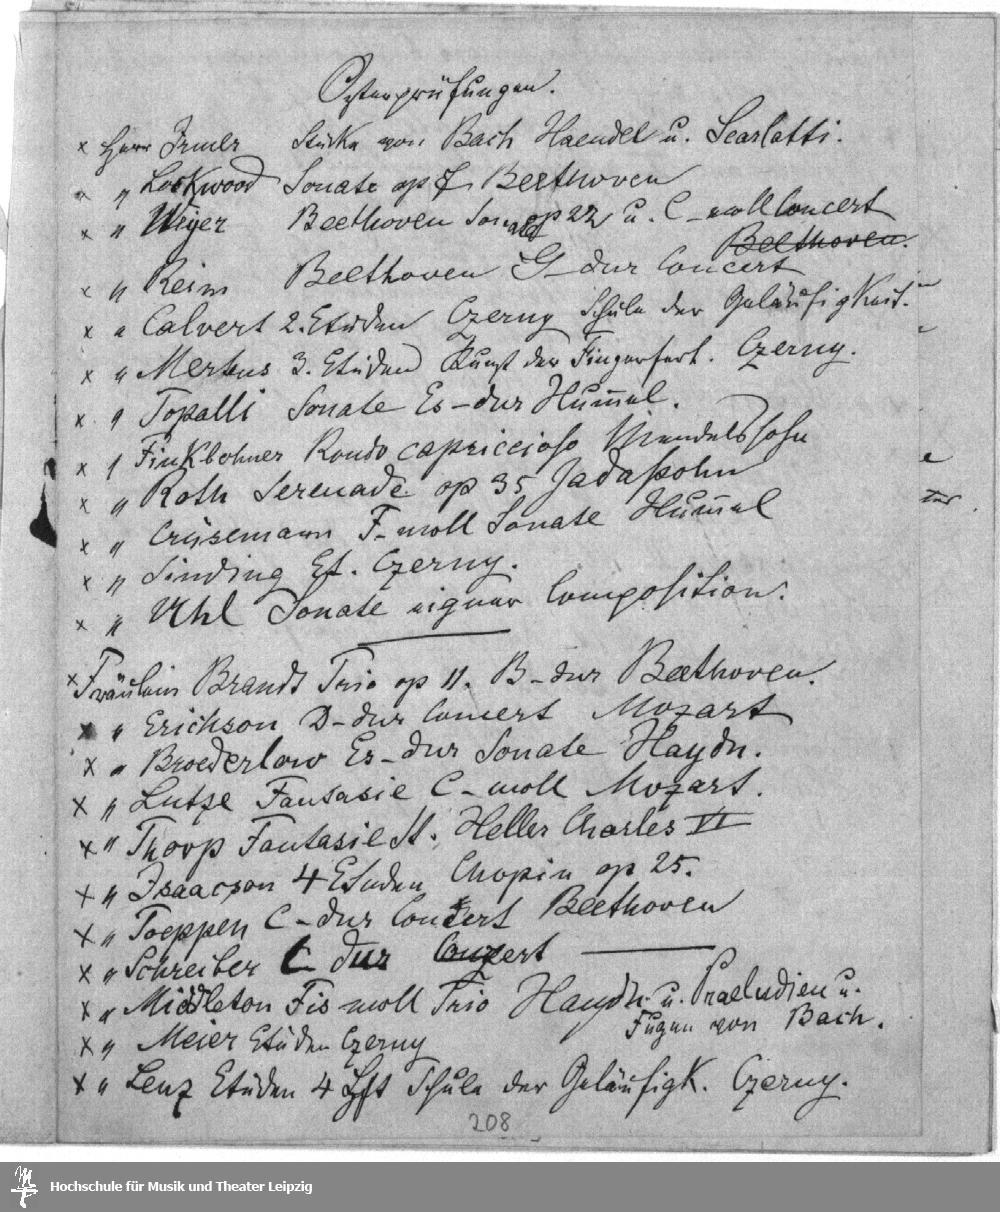 Osterprüfungen.
x Herr Irmler Stücke von Bach Haendel u. Scarlatti.
x " Lockwood Sonate op 7 Beethoven
x " Meyer Beethoven Sonate op 22 u. C-moll Concert
Beethoven.
x " Reim Beethoven G-dur Concert
x " Calvert 2. Etüden Czerny Schule der Geläufigkeit.
x " Mertens 3. Etüden Kunst der Fingerfert. Czerny.
x " Topalli Sonate Es-dur Hummel.
x " Finkbohner Rondo capriccioso Mendelssohn
x " Roth Serenade op 35 Jadassohn
x " Crüsemann F-moll Sonate Hummel
x " Sinding Et. Czerny.
x " Uhl Sonate eigner Composition.
x Fräulein Brandt Trio op 11. B-dur Beethoven.
x " Erichson D-dur Concert Mozart
x " Broederlow Es-dur Sonate Haydn.
x " Lutze Fantasie C-moll Mozart.
x " Thorp Fantasie St. Heller Charles VI
x " Isaacson 4 Etuden Chopin op 25.
x " Toeppen C-dur Concert Beethoven
x " Schreiber C dur Conzert ———
x " Middleton Fis moll Trio Haydn u. Praeludien u.
Fugen von Bach.
x " Meier Etüden Czerny
x " Lenz Etüden 4 Hft Schule der Geläufigk. Czerny.
208
Hochschule für Musik und Theater Leipzig